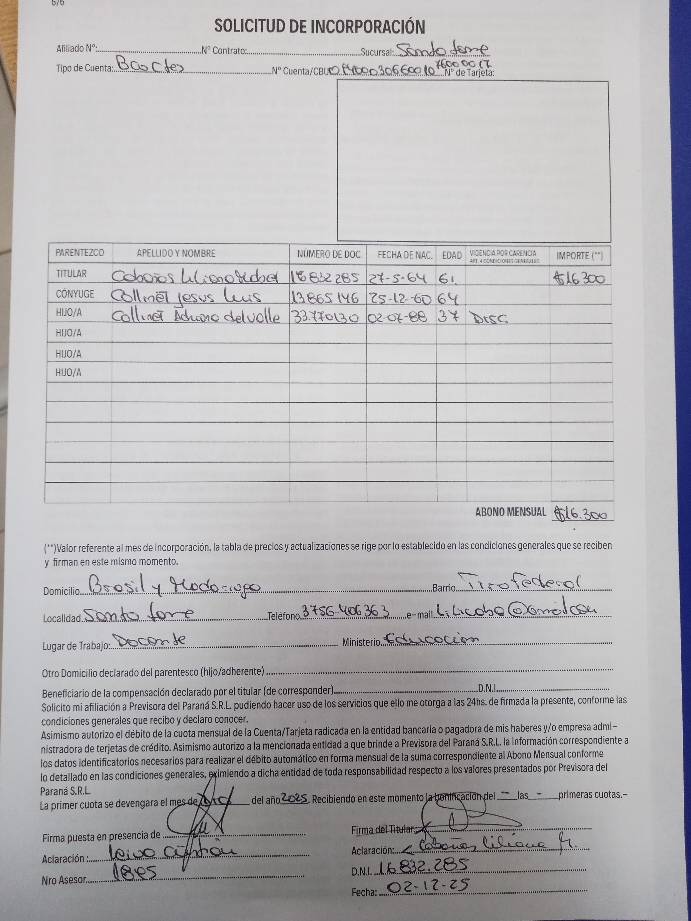 6/6
SOLICITUD DE INCORPORACIÓN
Afiliado Nº: Nº Contrato: Sucursal: Santo tome
Tipo de Cuenta: Nº Cuenta/CBU Nº de Tarjeta:
PARENTEZCO APELLIDO Y NOMBRE NÚMERO DE DOC. FECHA DE NAC. EDAD VIGENCIA POR CARENCIA IMPORTE (**)
TITULAR Liliana 16832285 27-5-64 61 $16300
CÓNYUGE Collinet Jesus Luis 13865146 25-12-60 64
HIJO/A Collinet Adriana del valle 33.770130 02-07-88 37 DISC
HIJO/A
HIJO/A
HIJO/A
ABONO MENSUAL $16.300
(**)Valor referente al mes de incorporación, la tabla de precios y actualizaciones se rige por lo establecido en las condiciones generales que se reciben
y firman en este mismo momento.
Domicilio Brasil y Barrio Tiro Federal
Localidad Santo tome Teléfono 3756.406363 e-mail
Lugar de Trabajo: Docente Ministerio Educacion
Otro Domicilio declarado del parentesco (hijo/adherente)
Beneficiario de la compensación declarado por el titular (de corresponder) D.N.I.
Solicito mi afiliación a Previsora del Paraná S.R.L. pudiendo hacer uso de los servicios que ello me otorga a las 24hs. de firmada la presente, conforme las
condiciones generales que recibo y declaro conocer.
Asimismo autorizo el débito de la cuota mensual de la Cuenta/Tarjeta radicada en la entidad bancaria o pagadora de mis haberes y/o empresa admi-
nistradora de tarjetas de crédito. Asimismo autorizo a la mencionada entidad a que brinde a Previsora del Paraná S.R.L. la información correspondiente a
los datos identificatorios necesarios para realizar el débito automático en forma mensual de la suma correspondiente al Abono Mensual conforme
lo detallado en las condiciones generales, eximiendo a dicha entidad de toda responsabilidad respecto a los valores presentados por Previsora del
Paraná S.R.L.
La primer cuota se devengara el mes de Dic del año 2025. Recibiendo en este momento la bonificación del — las - primeras cuotas.-
Firma puesta en presencia de Firma del Titular:
Aclaración: Aclaración: Cabañas Liliana
Nro Asesor D.N.I. 16.832.285
Fecha: 02-12-25